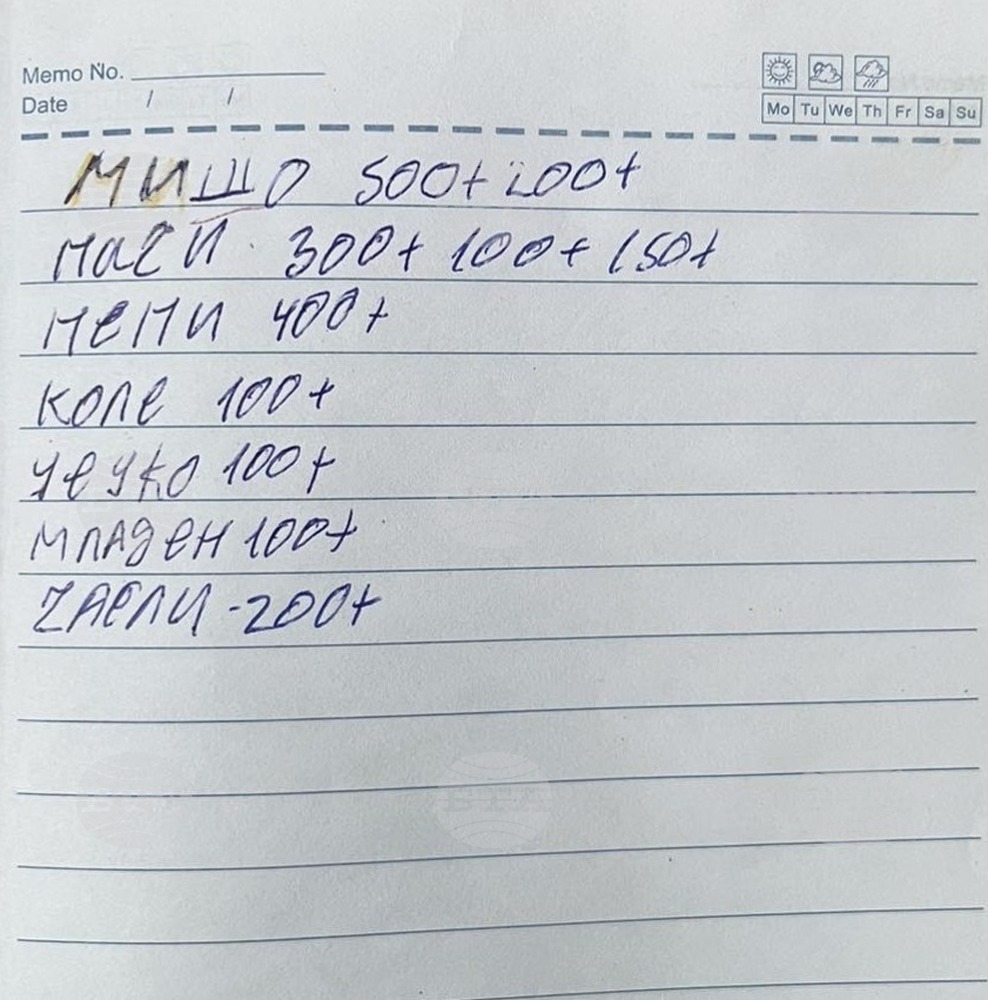 Memo No.
Date / /
Mo Tu We Th Fr Sa Su
МИШО 500+ 200+
Маги 300+ 100+ 150+
Мепи 400+
Коле 100+
Чечко 100+
Младен 100+
-200+